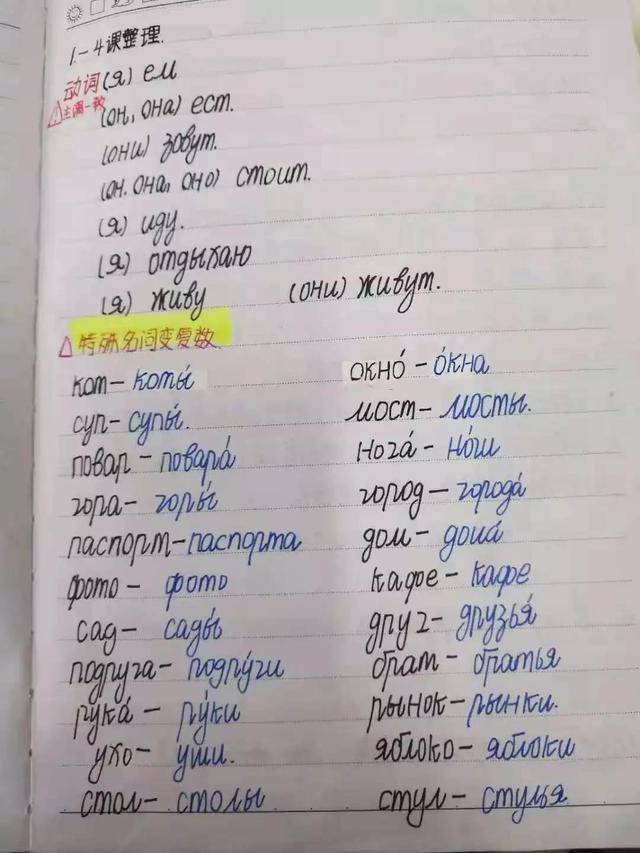 1.-4课整理.
动词(я) ем
⚠主谓一致 (он, она) ест.
(они) зовут.
(он. она, оно) стоит.
(я) иду.
(я) отдыхаю
(я) живу (они) живут.
△特殊名词变复数
кот – коты́ окно́ – о́кна
суп – супы́. мост – мосты.
повар – повара́ нога́ – но́ги
гора – горы́ город – города́
паспорт – паспорта дом – дома́
фото – фото кафе – кафе
сад – сады́ друг – друзья́
подруга – подру́ги брат – братья
рука́ – ру́ки рынок – рынки.
ухо – уши. яблоко – яблоки
стол – столы стул – стулья